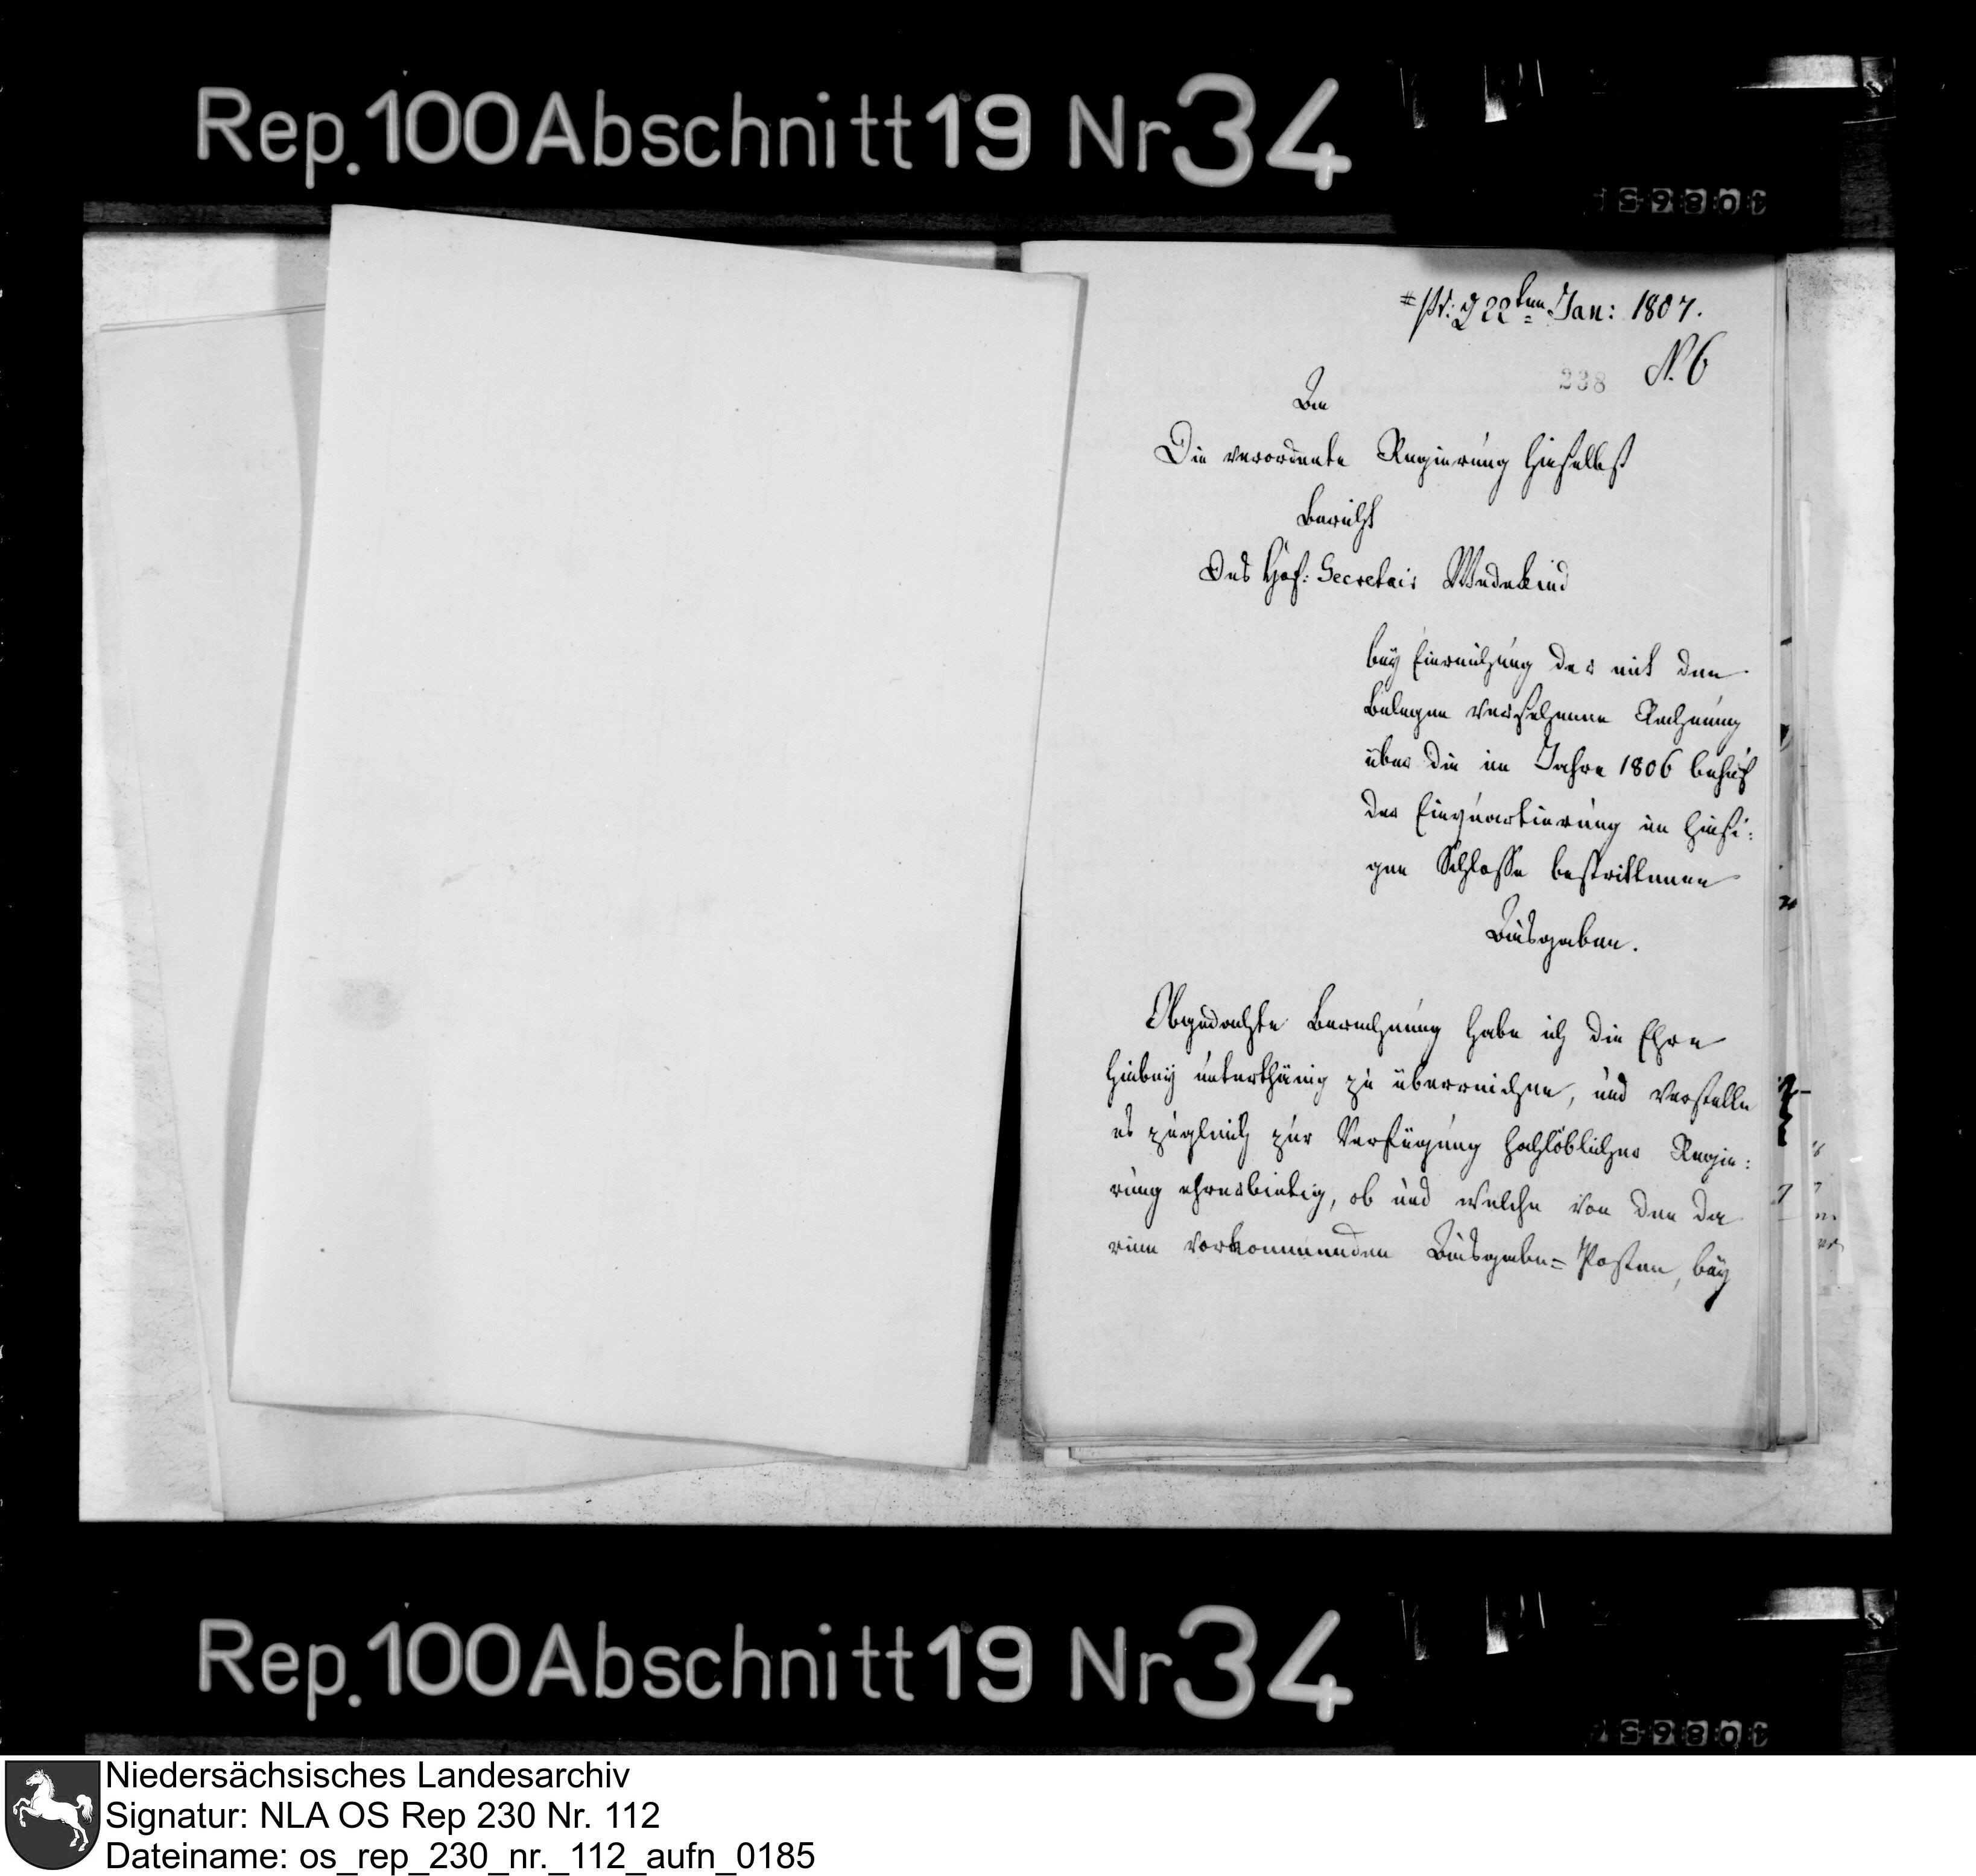 Rep. 100 Abschnitt 19 Nr 34
pr: d 22ten Jan: 1807.
N. 6
238
An
Die verordnete Regierung hieselbst
Bericht
des Hof: Secretair Wedekind
bey Einreichung der mit den
Belegen versehenen Rechnung
über die im Jahre 1806 behuf
der Einquartierung im hiesi:
gen Schlosse bestrittenen
Ausgaben.
Obgedachte Berechnung habe ich die Ehre
hiebey unterthänig zu überreichen, und verstelle
es zugleich zur Verfügung hochlöblicher Regie:
rung ehrerbietig, ob und welche von den da
rinn vorkommenden Ausgabe= Posten, bey
Rep. 100 Abschnitt 19 Nr 34
Niedersächsisches Landesarchiv
Signatur: NLA OS Rep 230 Nr. 112
Dateiname: os_rep_230_nr._112_aufn_0185